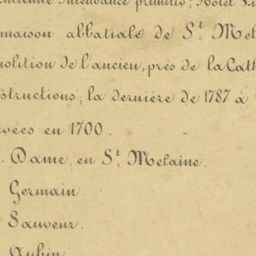 maison abbatiale de St. Mel
olition de l'ancien, près de la Cath
structions; la dernière de 1787 à
vées en 1700.
. Dame, en St. Melaine.
Germain
Sauveur.
Aubin